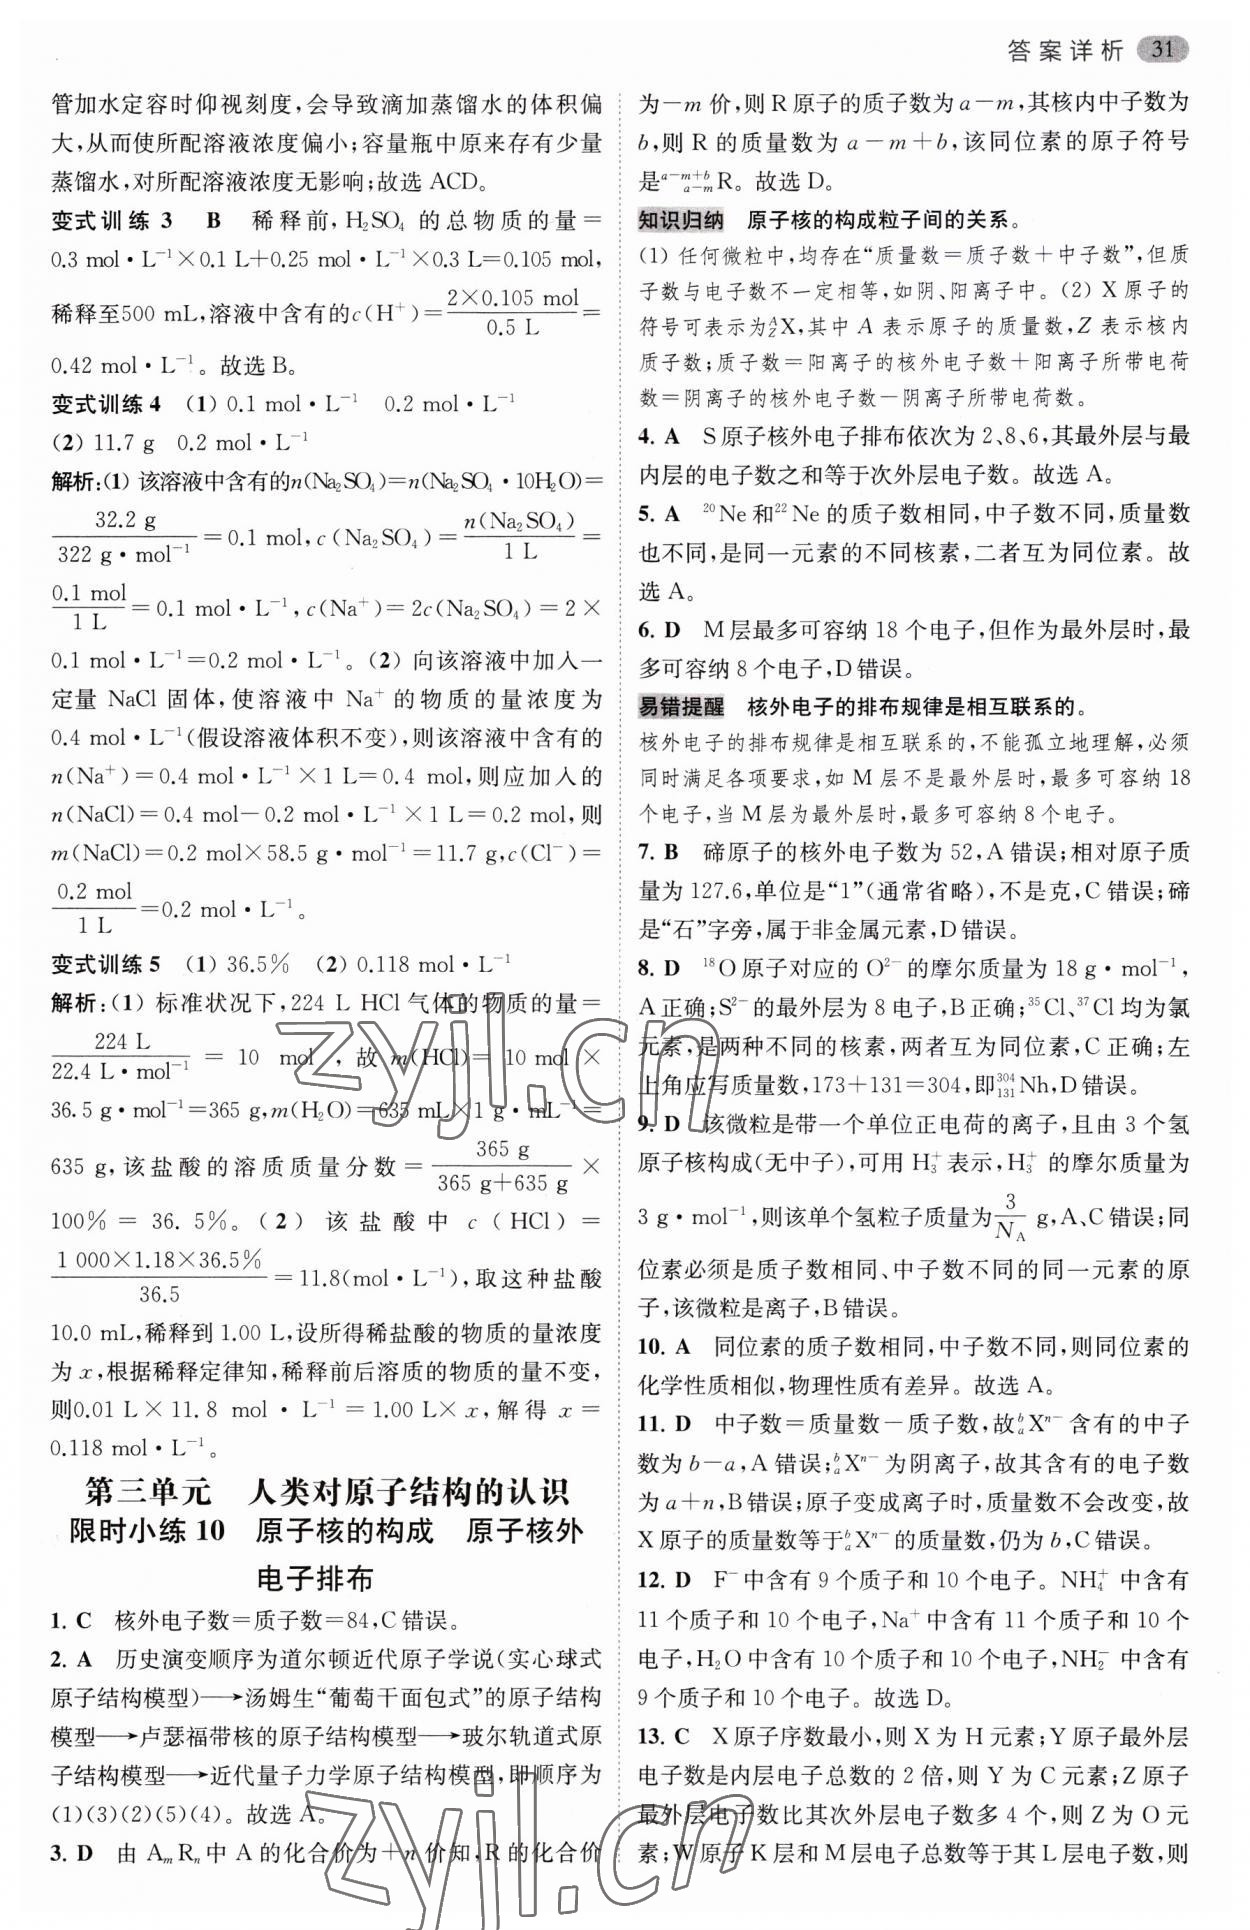 答案详析 31
管加水定容时仰视刻度,会导致滴加蒸馏水的体积偏
大,从而使所配溶液浓度偏小;容量瓶中原来存有少量
蒸馏水,对所配溶液浓度无影响;故选 ACD。
变式训练 3 B 稀释前,H₂SO₄ 的总物质的量=
0.3 mol·L⁻¹×0.1 L+0.25 mol·L⁻¹×0.3 L=0.105 mol,
稀释至500 mL,溶液中含有的c(H⁺)=(2×0.105 mol)/(0.5 L)=
0.42 mol·L⁻¹。故选 B。
变式训练4 (1) 0.1 mol·L⁻¹ 0.2 mol·L⁻¹
(2) 11.7 g 0.2 mol·L⁻¹
解析:(1) 该溶液中含有的n(Na₂SO₄)=n(Na₂SO₄·10H₂O)=
(32.2 g)/(322 g·mol⁻¹)=0.1 mol,c(Na₂SO₄)=n(Na₂SO₄)/(1 L)=
(0.1 mol)/(1 L)=0.1 mol·L⁻¹,c(Na⁺)=2c(Na₂SO₄)=2×
0.1 mol·L⁻¹=0.2 mol·L⁻¹。(2) 向该溶液中加入一
定量 NaCl 固体,使溶液中 Na⁺ 的物质的量浓度为
0.4 mol·L⁻¹(假设溶液体积不变),则该溶液中含有的
n(Na⁺)=0.4 mol·L⁻¹×1 L=0.4 mol,则应加入的
n(NaCl)=0.4 mol-0.2 mol·L⁻¹×1 L=0.2 mol,则
m(NaCl)=0.2 mol×58.5 g·mol⁻¹=11.7 g,c(Cl⁻)=
(0.2 mol)/(1 L)=0.2 mol·L⁻¹。
变式训练5 (1) 36.5% (2) 0.118 mol·L⁻¹
解析:(1) 标准状况下,224 L HCl 气体的物质的量=
(224 L)/(22.4 L·mol⁻¹) = 10 mol,故 m(HCl)= 10 mol ×
36.5 g·mol⁻¹=365 g,m(H₂O)=635 mL×1 g·mL⁻¹=
635 g,该盐酸的溶质质量分数=(365 g)/(365 g+635 g)×
100% = 36.5%。(2) 该盐酸中 c(HCl)=
(1 000×1.18×36.5%)/(36.5)=11.8(mol·L⁻¹),取这种盐酸
10.0 mL,稀释到 1.00 L,设所得稀盐酸的物质的量浓度
为 x,根据稀释定律知,稀释前后溶质的物质的量不变,
则0.01 L×11.8 mol·L⁻¹=1.00 L×x,解得 x=
0.118 mol·L⁻¹。
第三单元 人类对原子结构的认识
限时小练 10 原子核的构成 原子核外
电子排布
1. C 核外电子数=质子数=84,C 错误。
2. A 历史演变顺序为道尔顿近代原子学说(实心球式
原子结构模型)→汤姆生“葡萄干面包式”的原子结构
模型→卢瑟福带核的原子结构模型→玻尔轨道式原
子结构模型→近代量子力学原子结构模型,即顺序为
(1)(3)(2)(5)(4)。故选 A。
3. D 由 AₘRₙ中 A 的化合价为+n 价知,R 的化合价
为-m 价,则 R 原子的质子数为 a-m,其核内中子数为
b,则 R 的质量数为 a-m+b,该同位素的原子符号
是ᵃ⁻ᵐ⁺ᵇₐ₋ₘR。故选 D。
知识归纳 原子核的构成粒子间的关系。
(1) 任何微粒中,均存在“质量数=质子数+中子数”,但质
子数与电子数不一定相等,如阴、阳离子中。(2) X 原子的
符号可表示为{}^{A}_{Z}X,其中 A 表示原子的质量数,Z 表示核内
质子数;质子数=阳离子的核外电子数+阳离子所带电荷
数=阴离子的核外电子数-阴离子所带电荷数。
4. A S 原子核外电子排布依次为 2、8、6,其最外层与最
内层的电子数之和等于次外层电子数。故选 A。
5. A ²⁰Ne 和²²Ne 的质子数相同,中子数不同,质量数
也不同,是同一元素的不同核素,二者互为同位素。故
选 A。
6. D M 层最多可容纳 18 个电子,但作为最外层时,最
多可容纳 8 个电子,D 错误。
易错提醒 核外电子的排布规律是相互联系的。
核外电子的排布规律是相互联系的,不能孤立地理解,必须
同时满足各项要求,如 M 层不是最外层时,最多可容纳 18
个电子,当 M 层为最外层时,最多可容纳 8 个电子。
7. B 碲原子的核外电子数为 52,A 错误;相对原子质
量为 127.6,单位是“1”(通常省略),不是克,C 错误;碲
是“石”字旁,属于非金属元素,D 错误。
8. D ¹⁸O 原子对应的 O²⁻ 的摩尔质量为 18 g·mol⁻¹,
A 正确;S²⁻ 的最外层为 8 电子,B 正确;³⁵Cl、³⁷Cl 均为氯
元素,是两种不同的核素,两者互为同位素,C 正确;左
上角应写质量数,173+131=304,即{}^{304}_{131}Nh,D 错误。
9. D 该微粒是带一个单位正电荷的离子,且由 3 个氢
原子核构成(无中子),可用 H₃⁺ 表示,H₃⁺ 的摩尔质量为
3 g·mol⁻¹,则该单个氢粒子质量为3/N_A g,A、C 错误;同
位素必须是质子数相同、中子数不同的同一元素的原
子,该微粒是离子,B 错误。
10. A 同位素的质子数相同,中子数不同,则同位素的
化学性质相似,物理性质有差异。故选 A。
11. D 中子数=质量数-质子数,故{}^{b}_{a}Xⁿ⁻ 含有的中子
数为 b-a,A 错误;{}^{b}_{a}Xⁿ⁻ 为阴离子,故其含有的电子数
为 a+n,B 错误;原子变成离子时,质量数不会改变,故
X 原子的质量数等于{}^{b}_{a}Xⁿ⁻ 的质量数,仍为 b,C 错误。
12. D F⁻ 中含有 9 个质子和 10 个电子。NH₄⁺ 中含有
11 个质子和 10 个电子,Na⁺ 中含有 11 个质子和 10 个
电子,H₂O 中含有 10 个质子和 10 个电子,NH₂⁻ 中含有
9 个质子和 10 个电子。故选 D。
13. C X 原子序数最小,则 X 为 H 元素;Y 原子最外层
电子数是内层电子总数的 2 倍,则 Y 为 C 元素;Z 原子
最外层电子数比其次外层电子数多 4 个,则 Z 为 O 元
素;W 原子 K 层和 M 层电子总数等于其 L 层电子数,则
zyjl.cn
zyjl.cn